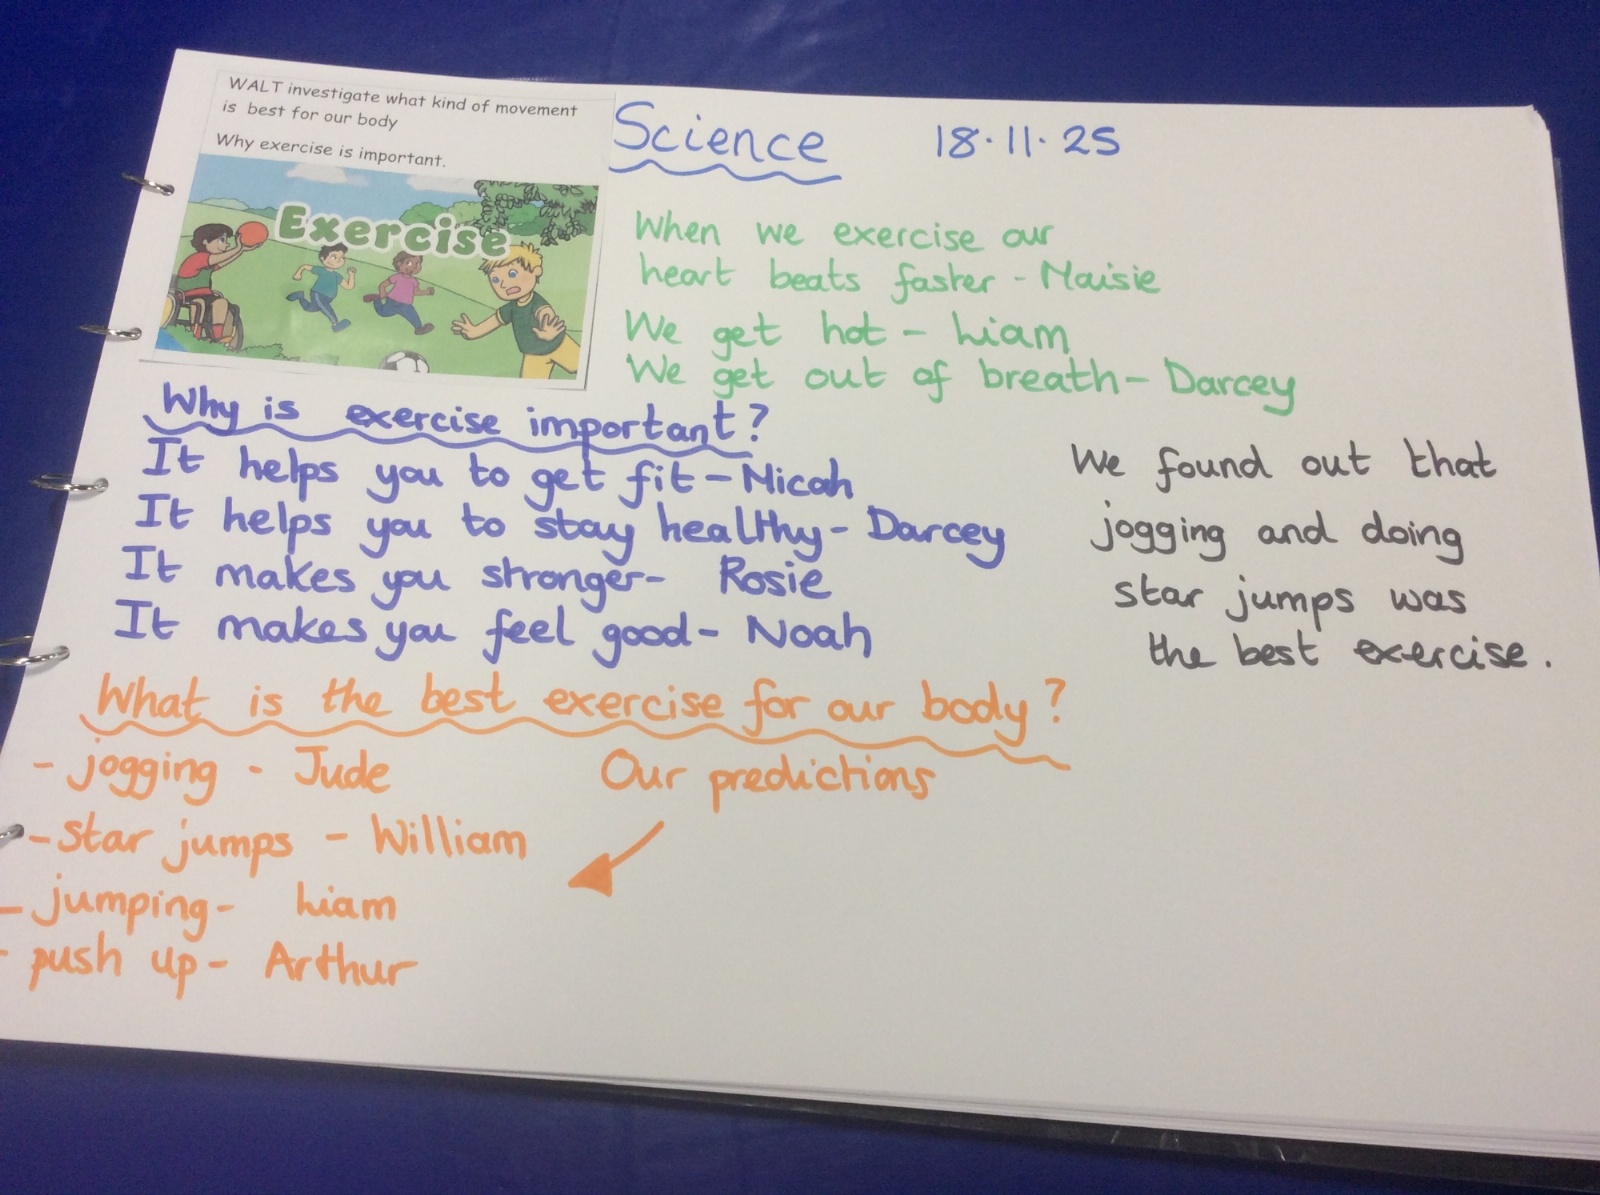 WALT investigate what kind of movement
is best for our body
Why exercise is important.
Exercise
Science 18.11.25
When we exercise our
heart beats faster - Maisie
We get hot - Liam
We get out of breath - Darcey
Why is exercise important?
It helps you to get fit - Micah
It helps you to stay healthy - Darcey
It makes you stronger - Rosie
It makes you feel good - Noah
We found out that
jogging and doing
star jumps was
the best exercise.
What is the best exercise for our body?
- jogging - Jude
Our predictions
- star jumps - William
- jumping - Liam
- push up - Arthur